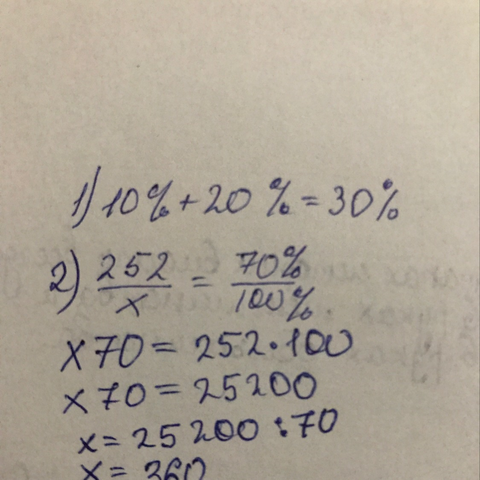 1) 10% + 20% = 30%
2) 252/x = 70%/100%
x70 = 252·100
x70 = 25200
x = 25200 : 70
x = 360